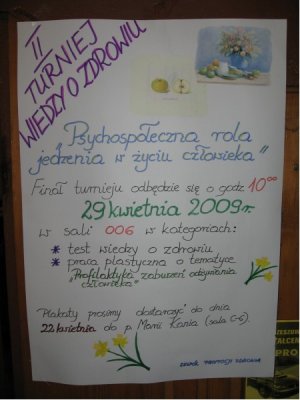 II
TURNIEJ
WIEDZY O ZDROWIU
"Psychospołeczna rola
jedzenia w życiu człowieka"
Finał turnieju odbędzie się o godz 10⁰⁰
29 kwietnia 2009 r.
w sali 006 w kategoriach:
* test wiedzy o zdrowiu
* praca plastyczna o tematyce
"Profilaktyka zaburzeń odżywiania
człowieka"
Plakaty prosimy dostarczyć do dnia
22 kwietnia do p. Marii Kania (sala C-6).
ZESPÓŁ PROMOCJI ZDROWIA